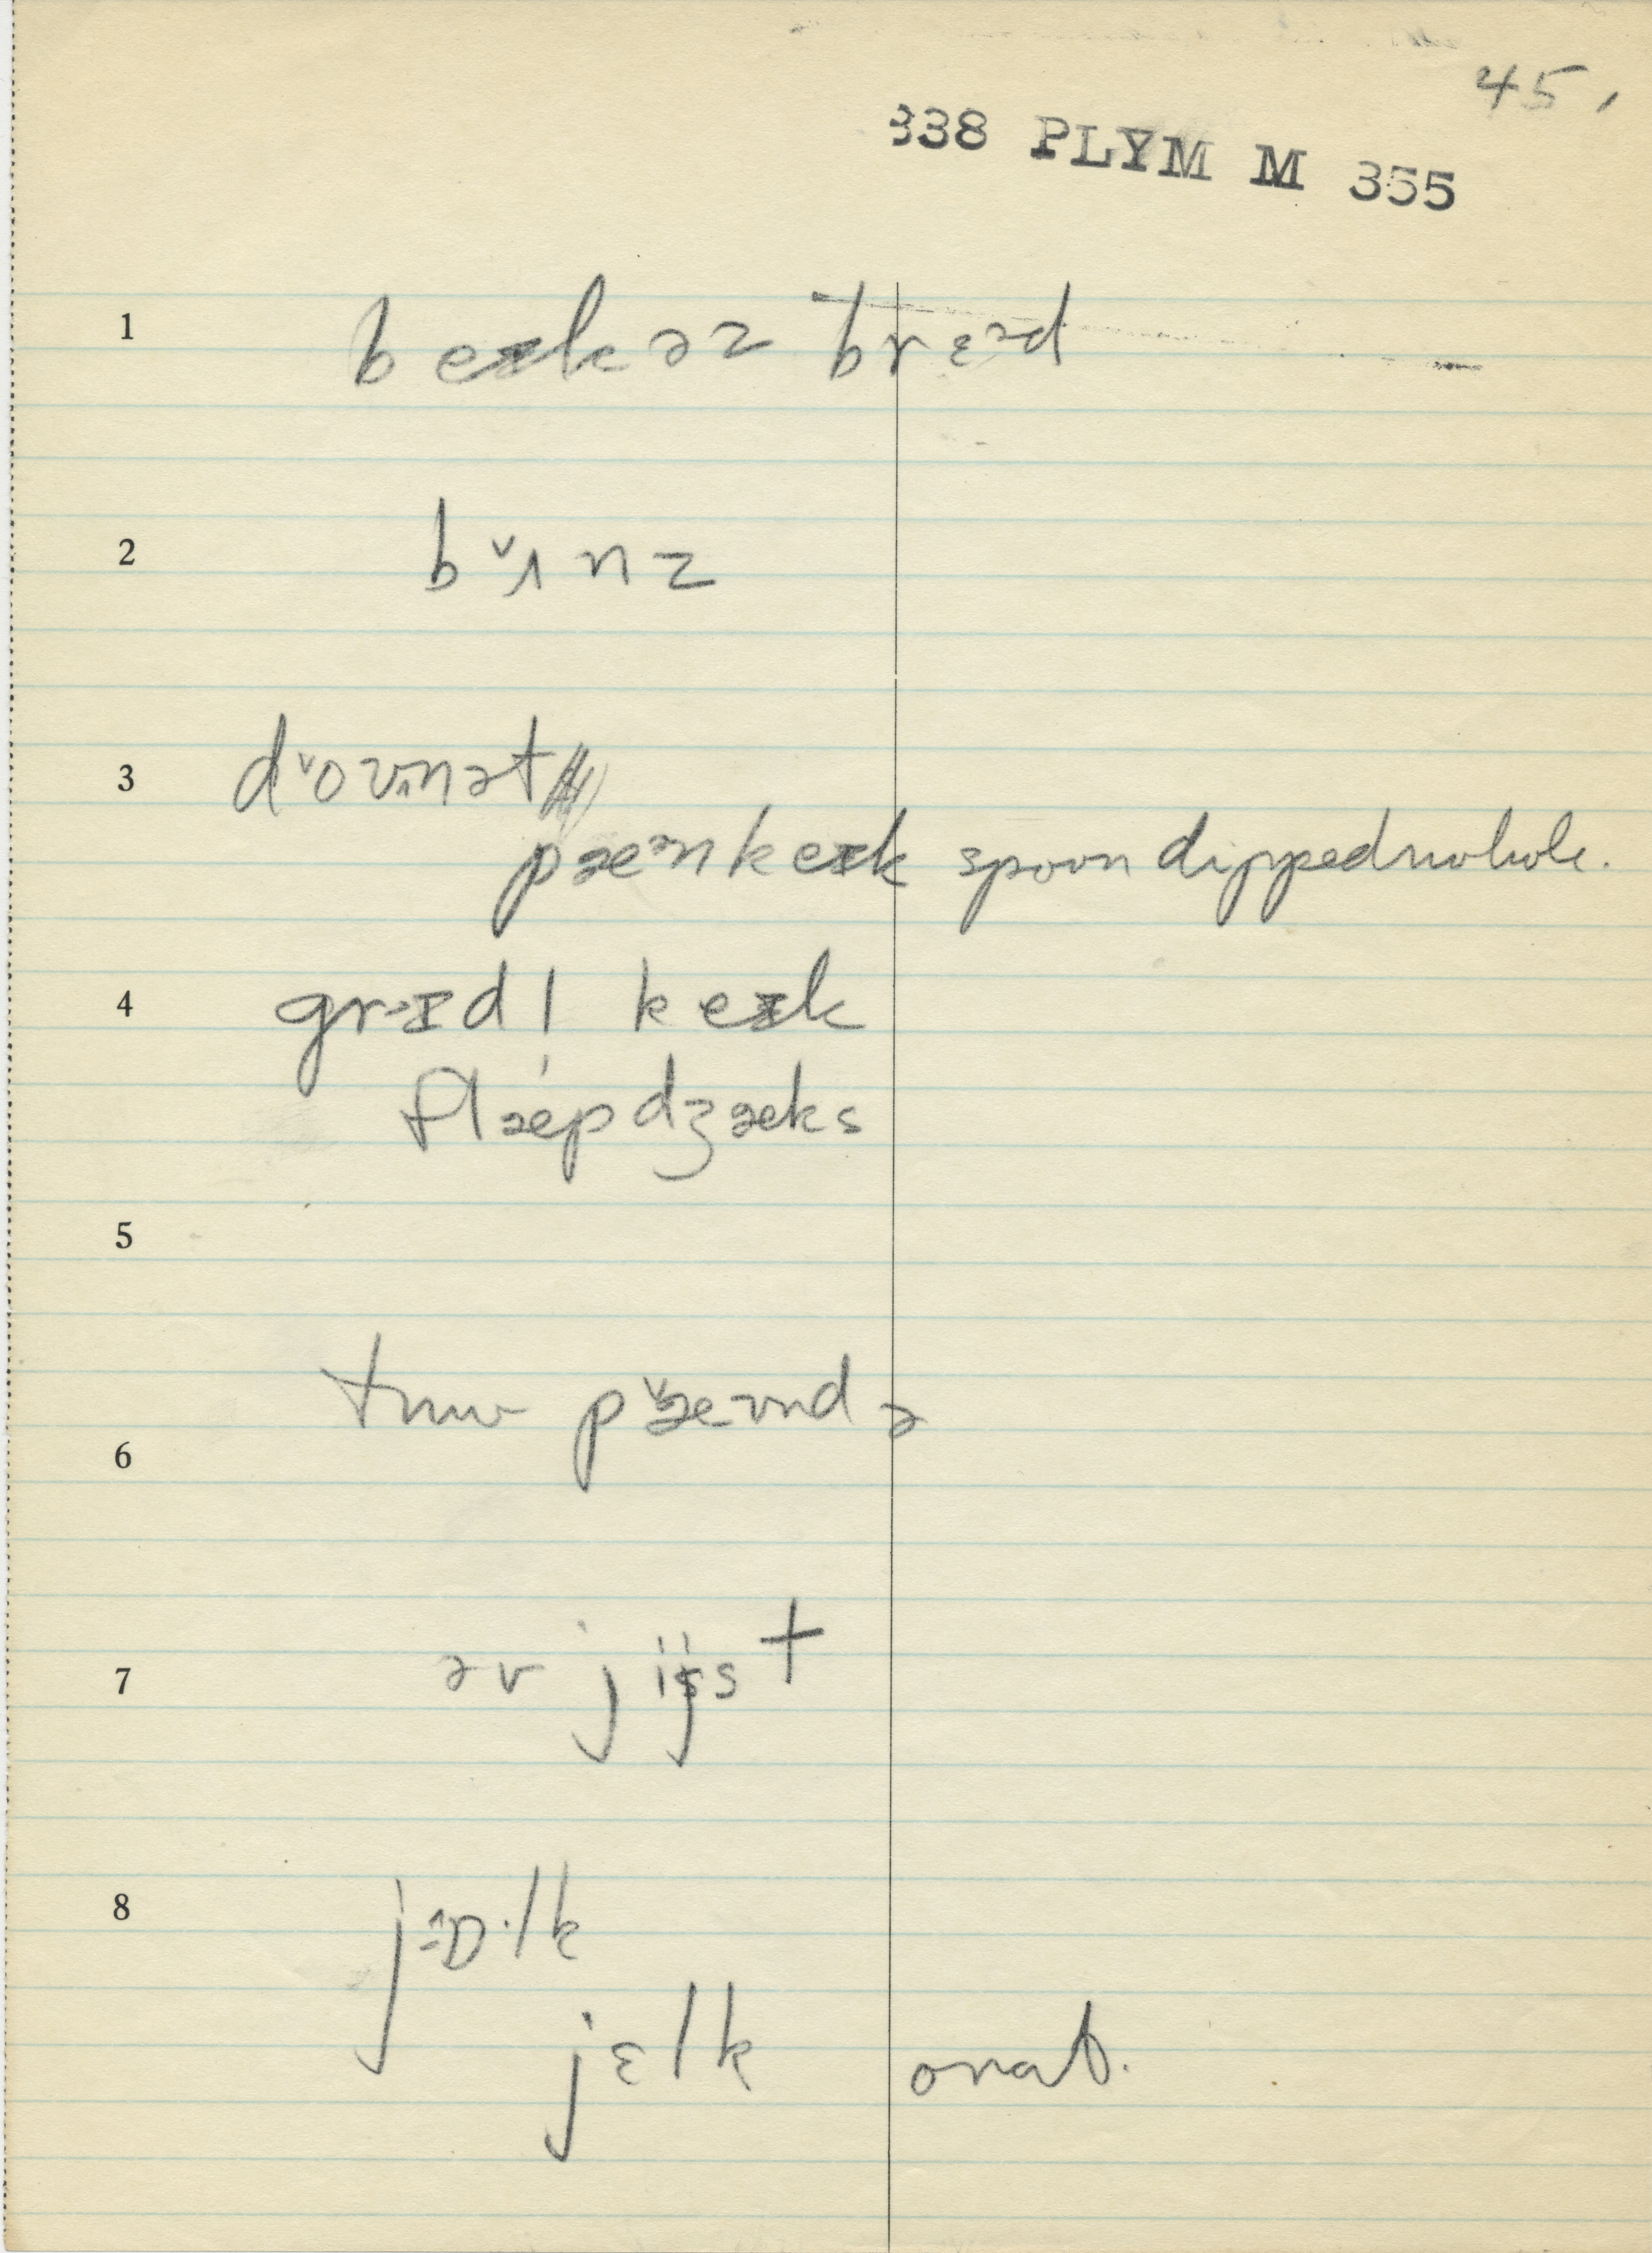 45.
338 PLYM M 355
1 beɪkəz brɛəd
2 bˇʌnz
3 dˇounət
pæənkeɪk spoon dipped no hole.
4 grɪdl keɪk
flæpdʒæks
5
6 tuu pˇæund ə
7 əv jijst
8 jɒ·lk
jɛlk